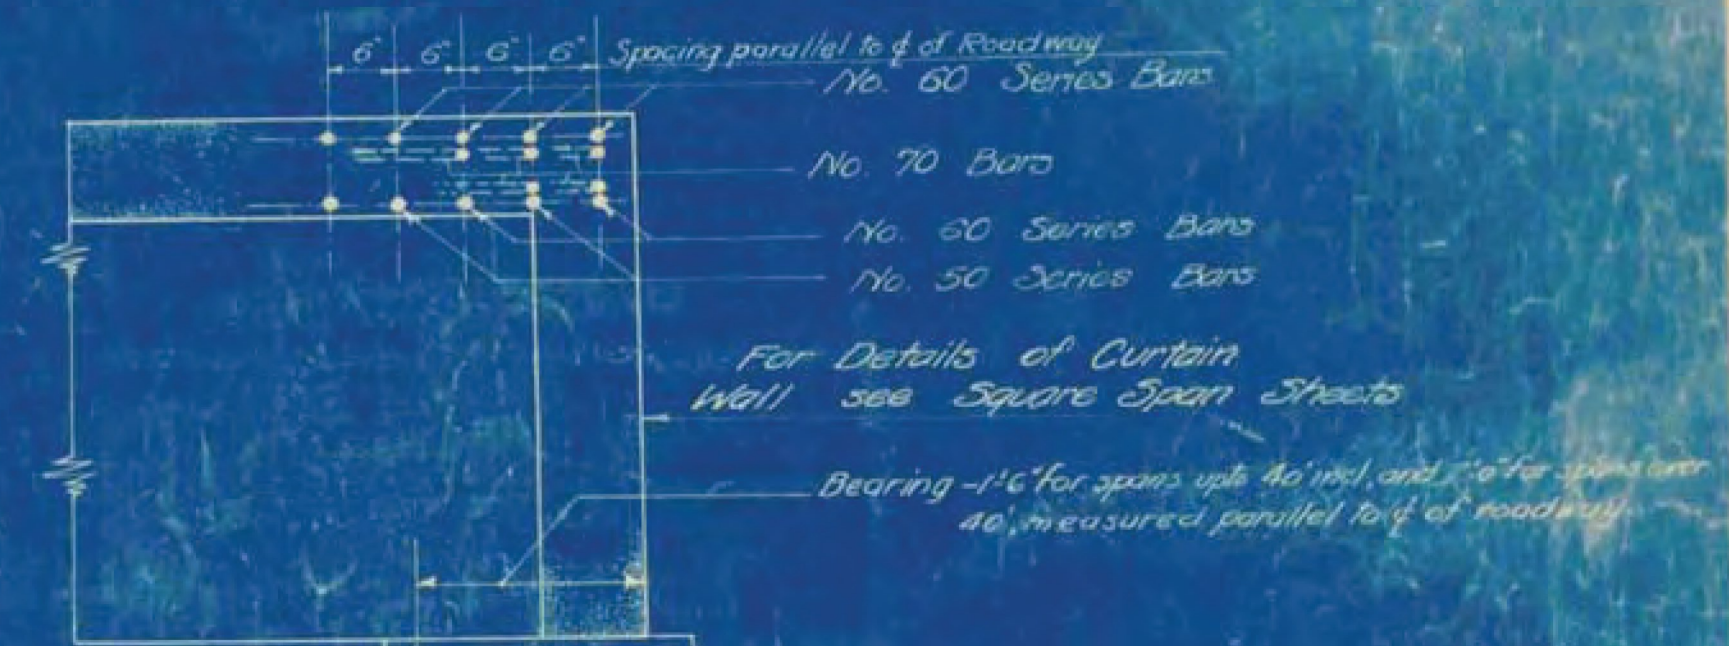 6" 6" 6" 6" Spacing parallel to ℄ of Roadway
No. 60 Series Bars
No. 70 Bars
No. 60 Series Bars
No. 50 Series Bars
For Details of Curtain
Wall see Square Span Sheets
Bearing - 1'6" for spans upto 40' incl, and for spans over
40', measured parallel to ℄ of roadway